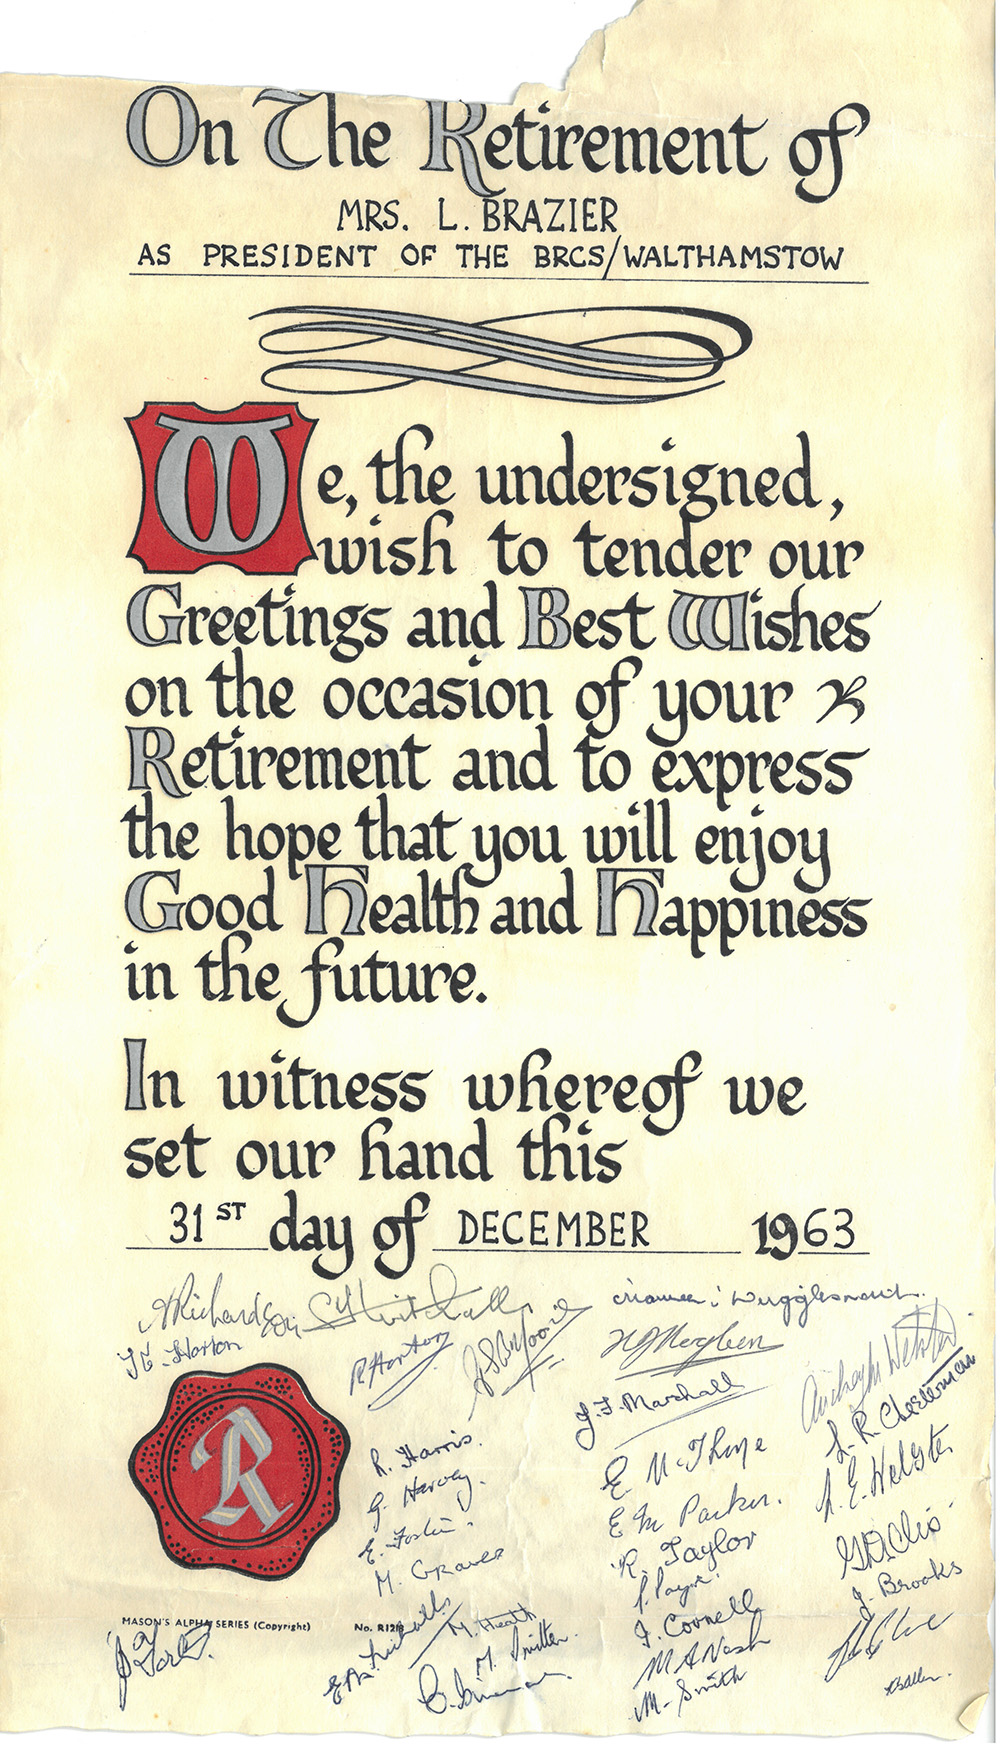 On The Retirement of
MRS. L. BRAZIER
AS PRESIDENT OF THE BRCS/WALTHAMSTOW
We, the undersigned,
wish to tender our
Greetings and Best Wishes
on the occasion of your
Retirement and to express
the hope that you will enjoy
Good Health and Happiness
in the future.
In witness whereof we
set our hand this
31ST day of DECEMBER 1963
Horton
R Horton
J. F. Marshall
R. Harris.
G. Harvey.
M. Graves
E M Parker.
R. Taylor
J. Cornell
M A Nash
M. Smith
L. R. Chesterman
A. E. Webster
J. Brooks
R
MASON'S ALPHA SERIES (Copyright) No. R12/8
M. Heath